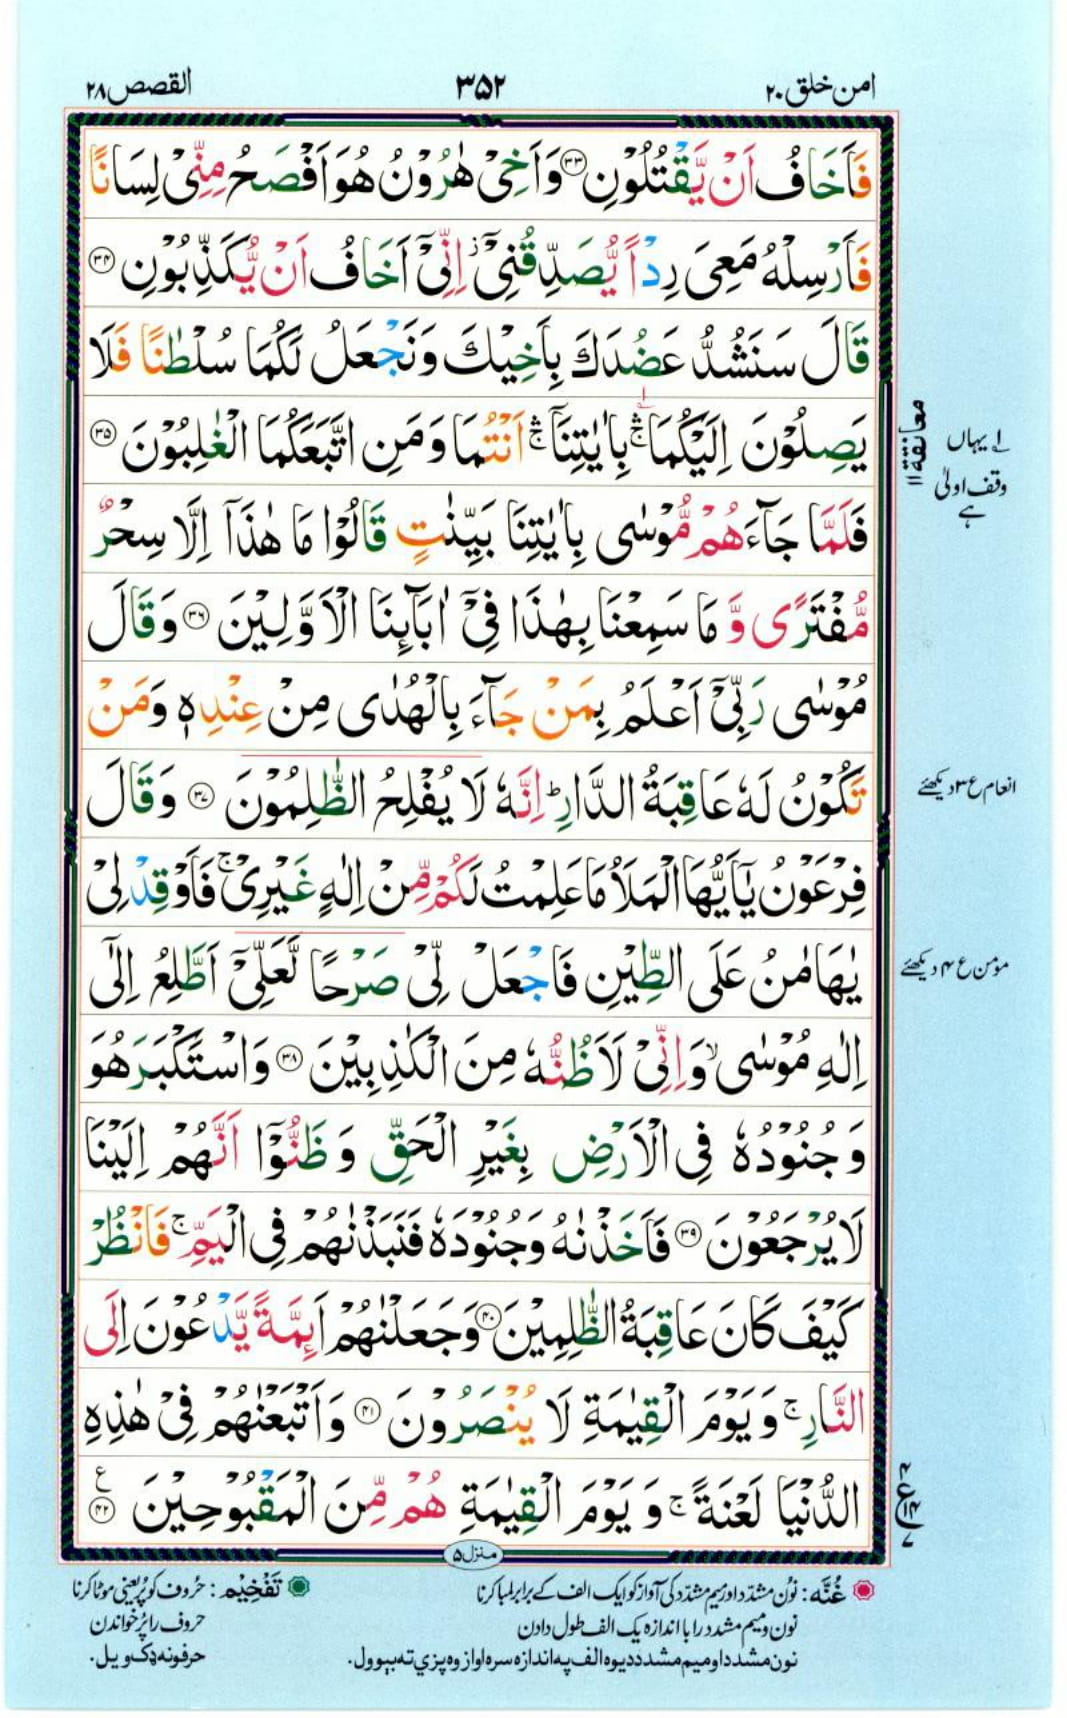 امن خلق ۲۰
۳۵۲
القصص ۲۸
فَاَخَافُ اَنْ يَّقْتُلُوْنِ ۝۳۳ وَاَخِىْ هٰرُوْنُ هُوَ اَفْصَحُ مِنِّىْ لِسَانًا
فَاَرْسِلْهُ مَعِىَ رِدْاً يُّصَدِّقُنِىْٓ ۡ اِنِّىْٓ اَخَافُ اَنْ يُّكَذِّبُوْنِ ۝۳۴
قَالَ سَنَشُدُّ عَضُدَكَ بِاَخِيْكَ وَنَجْعَلُ لَكُمَا سُلْطٰنًا فَلَا
يَصِلُوْنَ اِلَيْكُمَا ۛۚ بِاٰيٰتِنَآ ۛۚ اَنْتُمَا وَمَنِ اتَّبَعَكُمَا الْغٰلِبُوْنَ ۝۳۵
معانقة ۱۱
۱ یہاں
وقف اولیٰ
ہے
فَلَمَّا جَآءَهُمْ مُّوْسٰى بِاٰيٰتِنَا بَيِّنٰتٍ قَالُوْا مَا هٰذَآ اِلَّا سِحْرٌ
مُّفْتَرًى وَّ مَا سَمِعْنَا بِهٰذَا فِىْٓ اٰبَآئِنَا الْاَوَّلِيْنَ ۝۳۶ وَقَالَ
مُوْسٰى رَبِّىْٓ اَعْلَمُ بِمَنْ جَآءَ بِالْهُدٰى مِنْ عِنْدِهٖ وَمَنْ
تَكُوْنُ لَهٗ عَاقِبَةُ الدَّارِ ؕ اِنَّهٗ لَا يُفْلِحُ الظّٰلِمُوْنَ ۝۳۷ وَقَالَ
انعام ع ۳ دیکھئے
فِرْعَوْنُ يٰٓاَيُّهَا الْمَلَاُ مَا عَلِمْتُ لَكُمْ مِّنْ اِلٰهٍ غَيْرِىْ ۚ فَاَوْقِدْ لِىْ
يٰهَامٰنُ عَلَى الطِّيْنِ فَاجْعَلْ لِّىْ صَرْحًا لَّعَلِّىْٓ اَطَّلِعُ اِلٰٓى
مؤمن ع ۴ دیکھئے
اِلٰهِ مُوْسٰى ۙ وَاِنِّىْ لَاَظُنُّهٗ مِنَ الْكٰذِبِيْنَ ۝۳۸ وَاسْتَكْبَرَ هُوَ
وَجُنُوْدُهٗ فِى الْاَرْضِ بِغَيْرِ الْحَقِّ وَظَنُّوْٓا اَنَّهُمْ اِلَيْنَا
لَا يُرْجَعُوْنَ ۝۳۹ فَاَخَذْنٰهُ وَجُنُوْدَهٗ فَنَبَذْنٰهُمْ فِى الْيَمِّ ۚ فَانْظُرْ
كَيْفَ كَانَ عَاقِبَةُ الظّٰلِمِيْنَ ۝۴۰ وَجَعَلْنٰهُمْ اَئِمَّةً يَّدْعُوْنَ اِلَى
النَّارِ ۚ وَيَوْمَ الْقِيٰمَةِ لَا يُنْصَرُوْنَ ۝۴۱ وَاَتْبَعْنٰهُمْ فِىْ هٰذِهِ
الدُّنْيَا لَعْنَةً ۚ وَيَوْمَ الْقِيٰمَةِ هُمْ مِّنَ الْمَقْبُوْحِيْنَ ۝۴۲ ع
منزل ۵
غُنَّه: نُون مشدّد اور میم مشدّد کی آواز کو ایک الف کے برابر لمبا کرنا
نون و میم مشدد را با اندازه یک الف طول دادن
نون مشدد او میم مشدد دیوه الف په اندازه سره اواز وه پزې ته بېوول.
تَفْخِیْم: حُروف کو پُر یعنی موٹا کرنا
حروف را پُر خواندن
حرفونه ډک ویل.